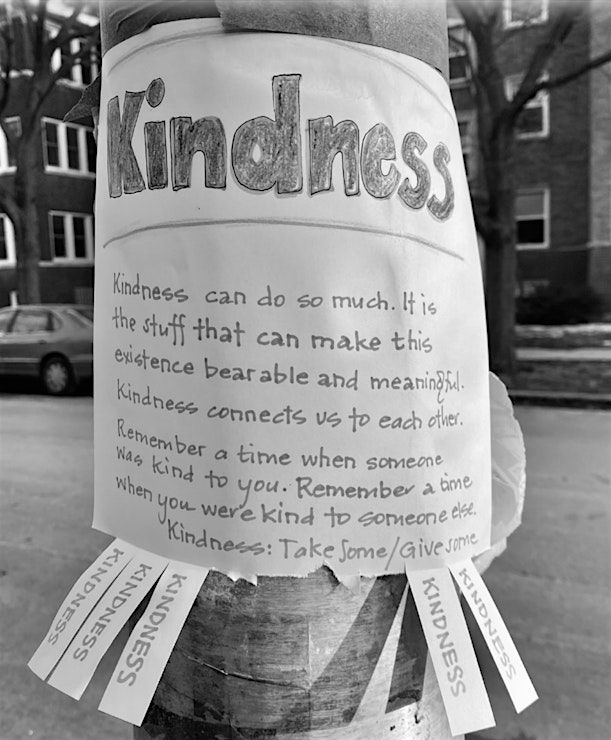 Kindness
Kindness can do so much. It is
the stuff that can make this
existence bearable and meaningful.
Kindness connects us to each other.
Remember a time when someone
was kind to you. Remember a time
when you were kind to someone else.
Kindness: Take Some/Give some
KINDNESS
KINDNESS
KINDNESS
KINDNESS
KINDNESS